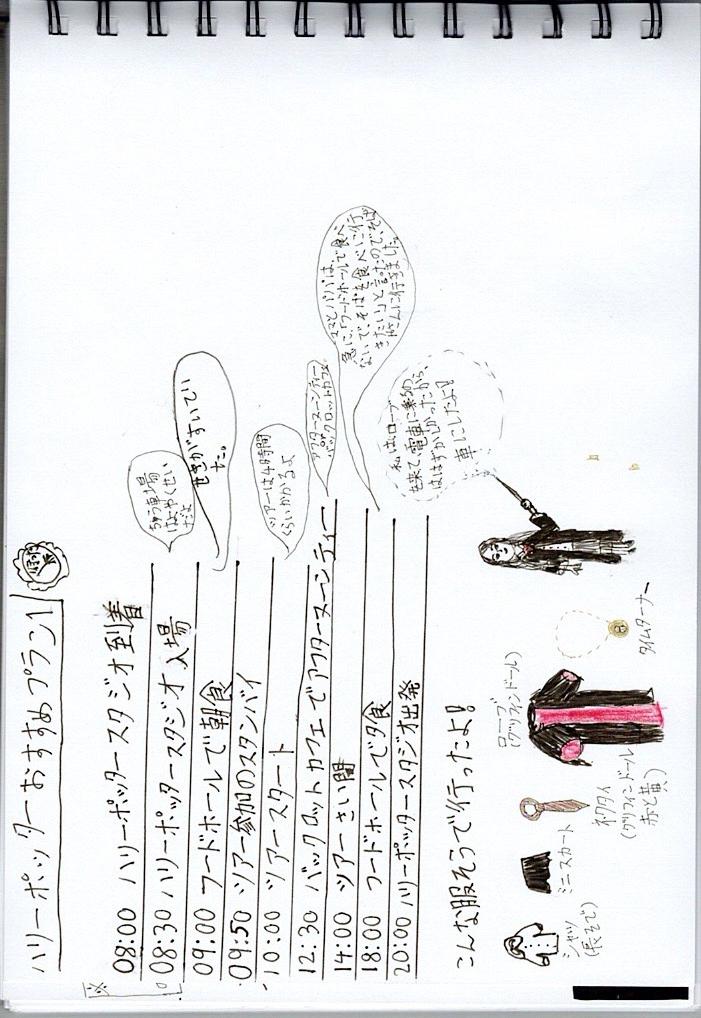 ハリーポッターおすすめプラン1
08:00 ハリーポッタースタジオ到着
08:30 ハリーポッタースタジオ入場
ちゅう車場
はよやくせい
だよ
09:00 フードホールで朝食
せきがすいてい
た。
09:50 ツアー参加のスタンバイ
10:00 ツアースタート
ツアーは4時間
くらいかかるよ
12:30 バックロットカフェでアフターヌーンティー
アフターヌーンティー
バックロットカフェ
14:00 ツアーさい開
18:00 フードホールで夕食
ママとパパは、
急に「フードホールで食べ
ないでそばを食べに行
きたい」と言ったのでそば
屋さんに行きました。
20:00 ハリーポッタースタジオ出発
こんな服そうで行ったよ!
私はローブ
を来て、電車に乗るの
ははずかしかったから、
車にしたよ!
シャツ
(長そで)
ミニスカート
ネクタイ
(グリフィンドール
赤と黄)
ローブ
(グリフィンドール)
タイムターナー